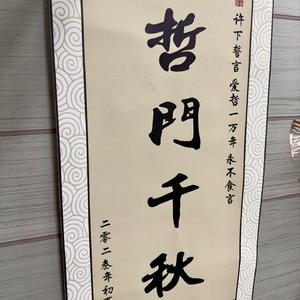 许下誓言爱哲一万年永不食言
哲門千秋
二零二叁年初